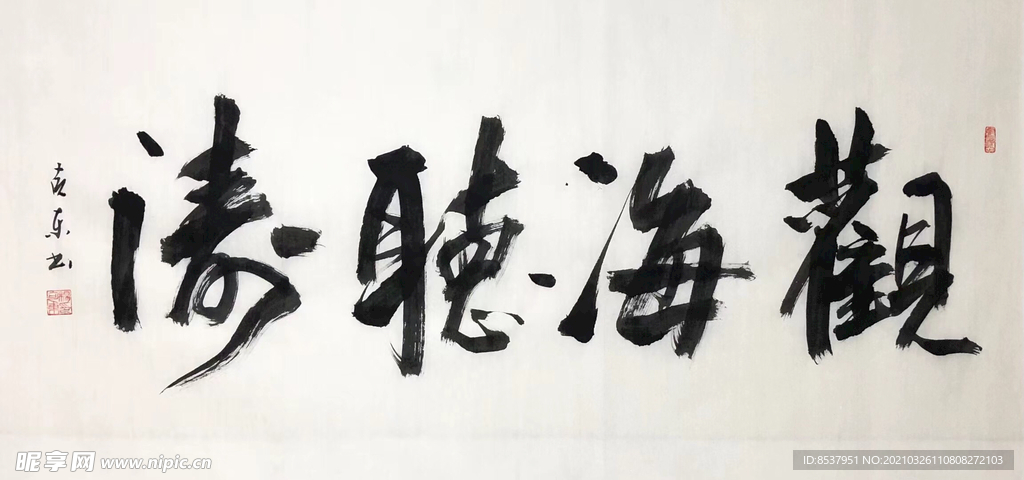 觀海聽濤
吉东书
昵享网 www.nipic.cn
ID:8537951 NO:20210326110808272103